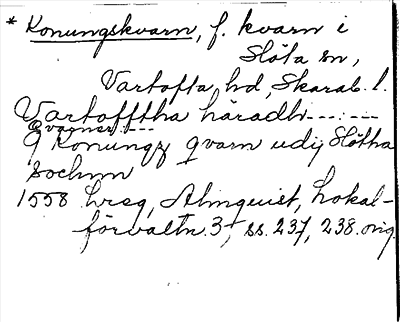 * Konungskvarn, f. kvarn i
Slöta sn,
Vartofta hd, Skarab. l.
Vartofftha häradh - - - : - - -
Qvarner: - - -
9 Konungz qvarn udij Slötha
sochnn
1558 hrsg, Almquist, Lokal-
förvaltn. 3, ss. 237, 238. orig.